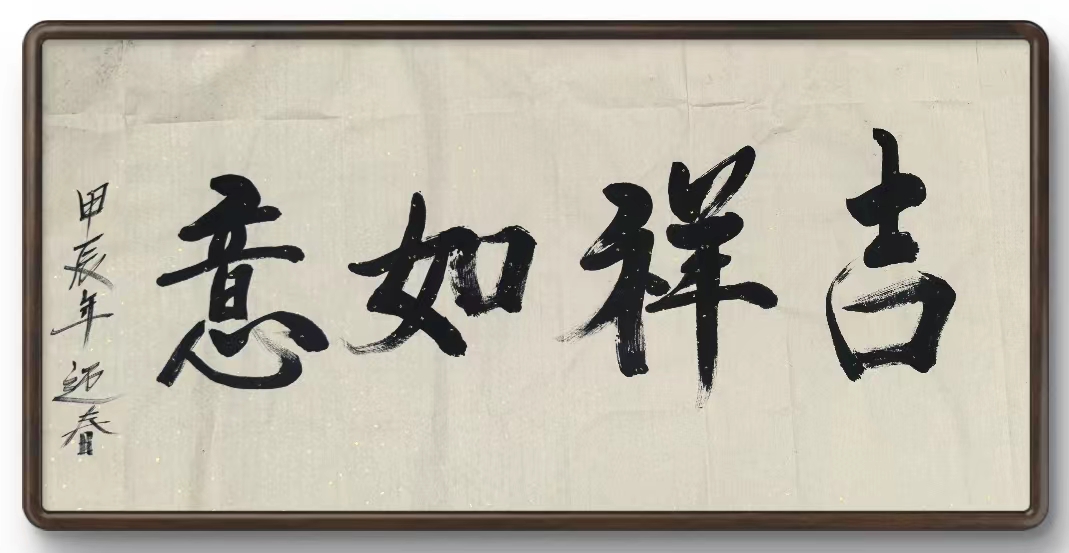 吉祥如意
甲辰年迎春